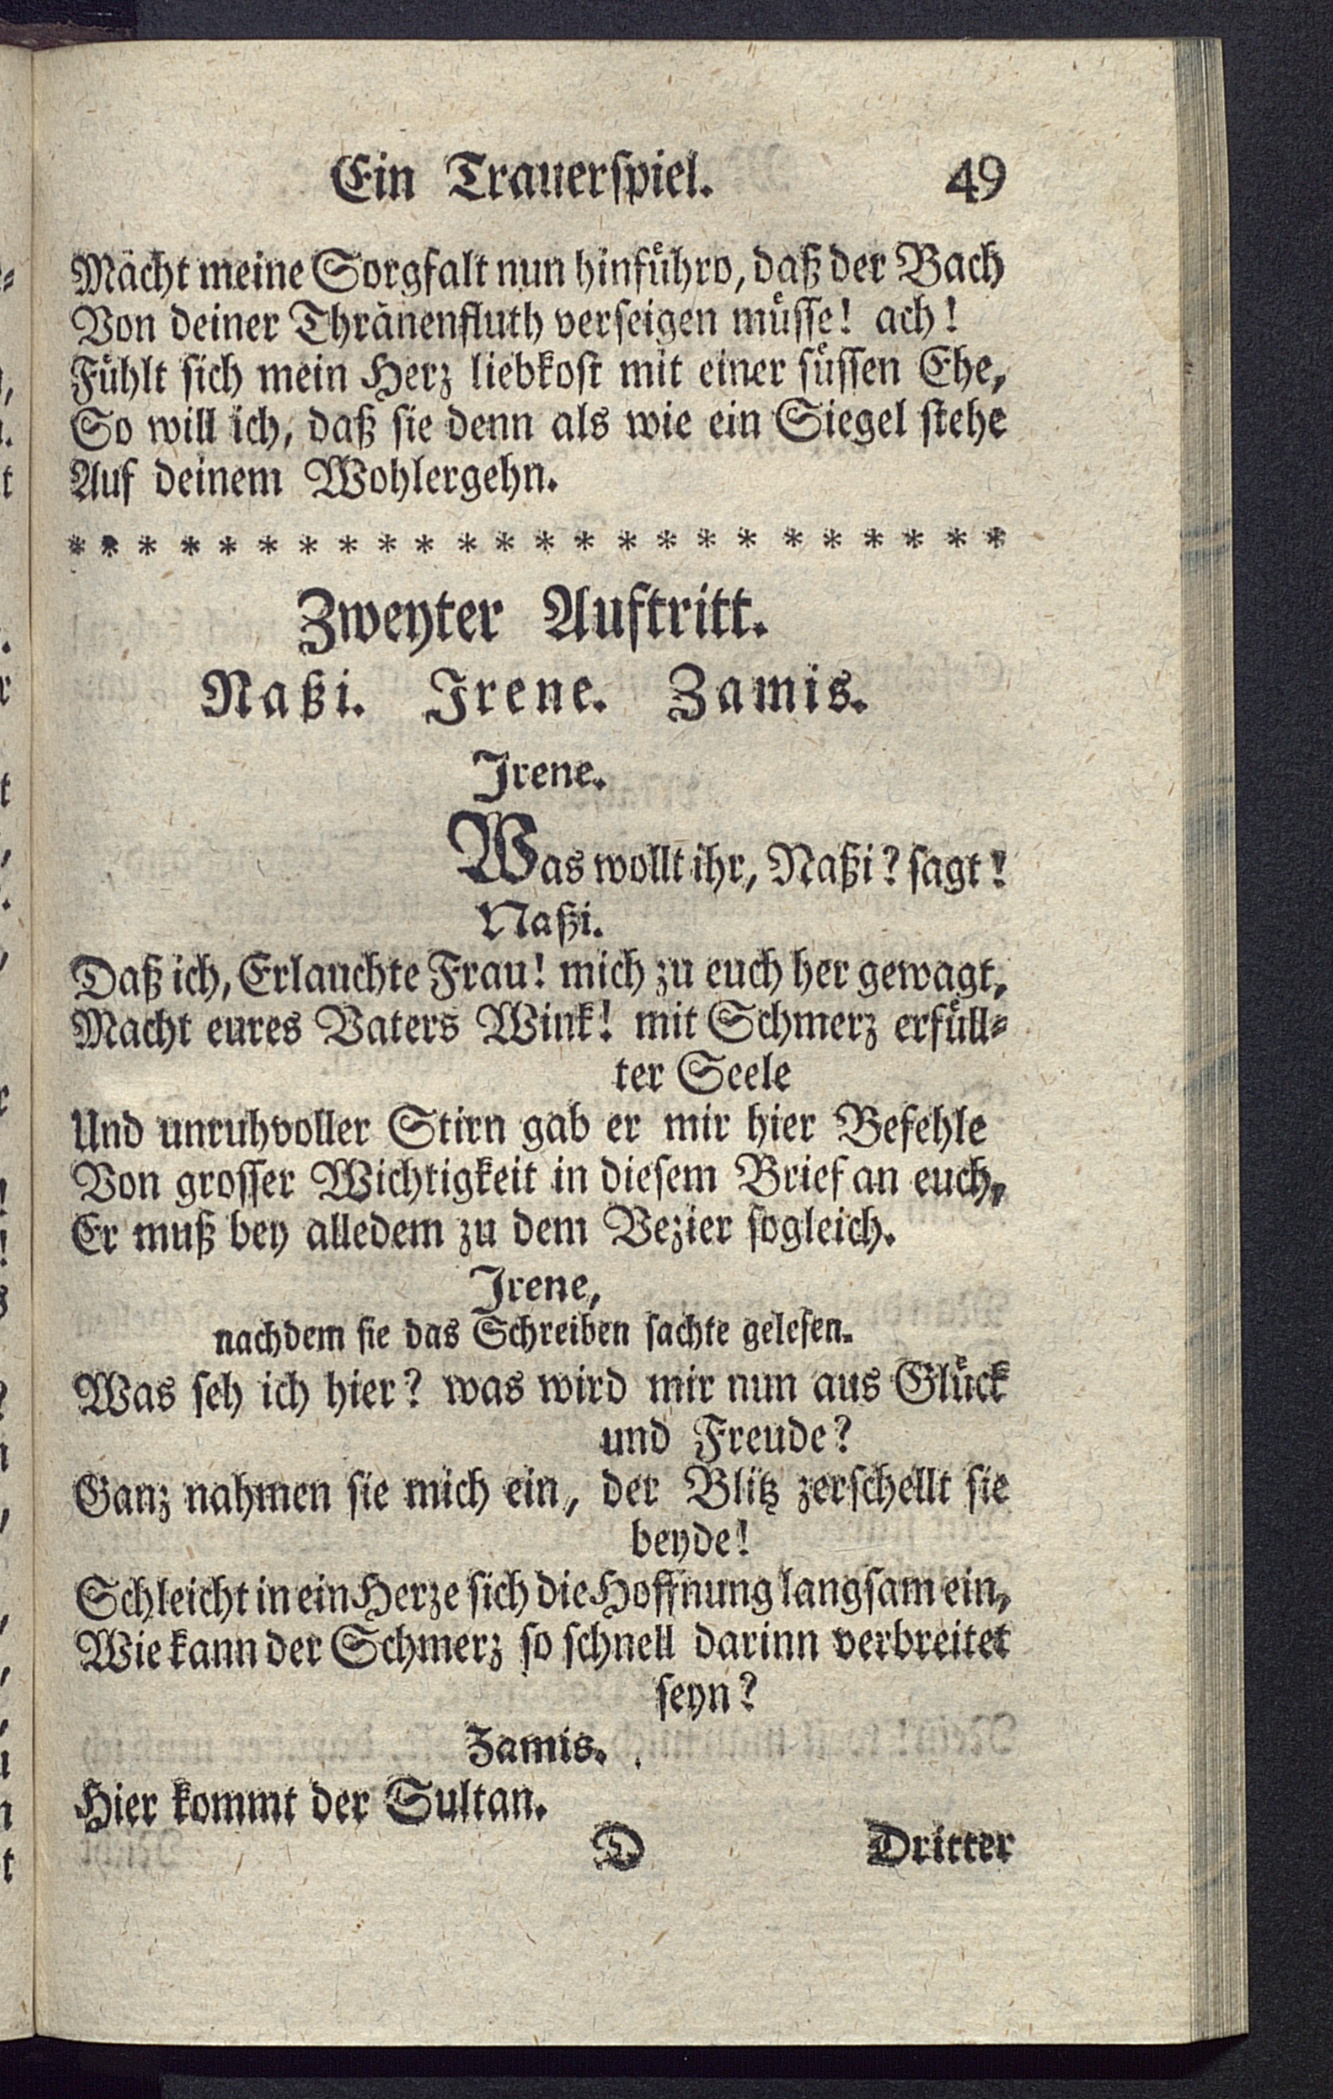 Ein Trauerspiel. 49
Macht meine Sorgfalt nun hinführo, daß der Bach
Von deiner Thränenfluth verseigen müsse! ach!
Fühlt sich mein Herz liebkost mit einer süssen Ehe,
So will ich, daß sie denn als wie ein Siegel stehe
Auf deinem Wohlergehn.
* * * * * * * * * * * * * * * * * * * * * * * *
Zweyter Auftritt.
Naßi. Irene. Zamis.
Irene.
Was wollt ihr, Naßi? sagt!
Naßi.
Daß ich, Erlauchte Frau! mich zu euch her gewagt,
Macht eures Vaters Wink! mit Schmerz erfüll-
ter Seele
Und unruhvoller Stirn gab er mir hier Befehle
Von grosser Wichtigkeit in diesem Brief an euch,
Er muß bey alledem zu dem Vezier sogleich.
Irene,
nachdem sie das Schreiben sachte gelesen.
Was seh ich hier? was wird mir nun aus Glück
und Freude?
Ganz nahmen sie mich ein, der Blitz zerschellt sie
beyde!
Schleicht in ein Herze sich die Hoffnung langsam ein,
Wie kann der Schmerz so schnell darinn verbreitet
seyn?
Zamis.
Hier kommt der Sultan.
D Dritter